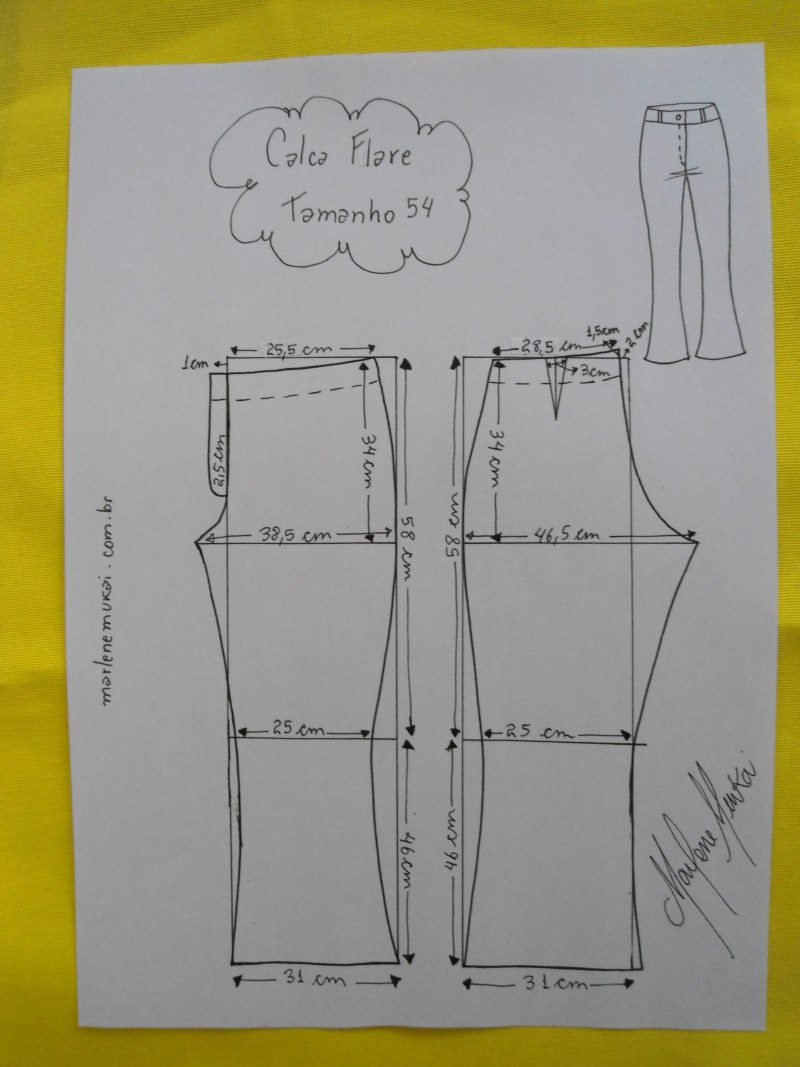 Calca Flare
Tamanho 54
1cm
25,5 cm
28,5 cm
1,5cm
2 cm
3cm
2,5 cm
34cm
34cm
58 cm
58 cm
38,5 cm
46,5 cm
marlenemukai.com.br
25 cm
25 cm
46cm
46 cm
Marlene Mukai
31 cm
31 cm